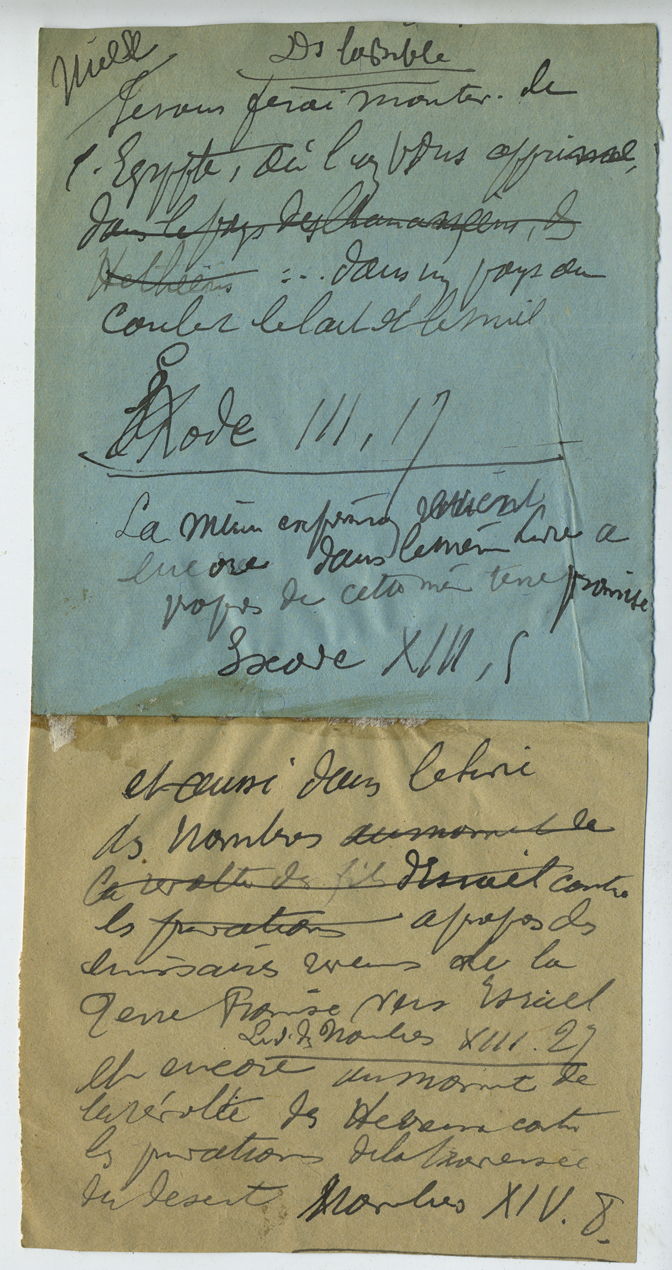 Miel
Ds la Bible
Je vous ferai monter de
l'Egypte, où l'on vous opprime,
dans le pays des Chananéens, des
Hethéens ... dans un pays où
coulent le lait et le miel
Exode III, 17
La même expression revient
encore dans le même livre a
propos de cette même terre promise
Exode XIII, 5
et aussi dans le livre
des Nombres au moment de
la révolte des fils d'Israël contre
les privations a propos des
émissaires venus de la
Terre Promise vers Israël
Liv. des Nombres XIII. 27
et encore au moment de
la révolte des Hébreux contre
les privations de la traversée
du desert Nombres XIV. 8